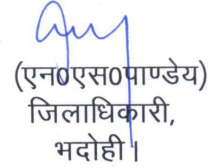 (एन0एस0पाण्डेय)
जिलाधिकारी,
भदोही।